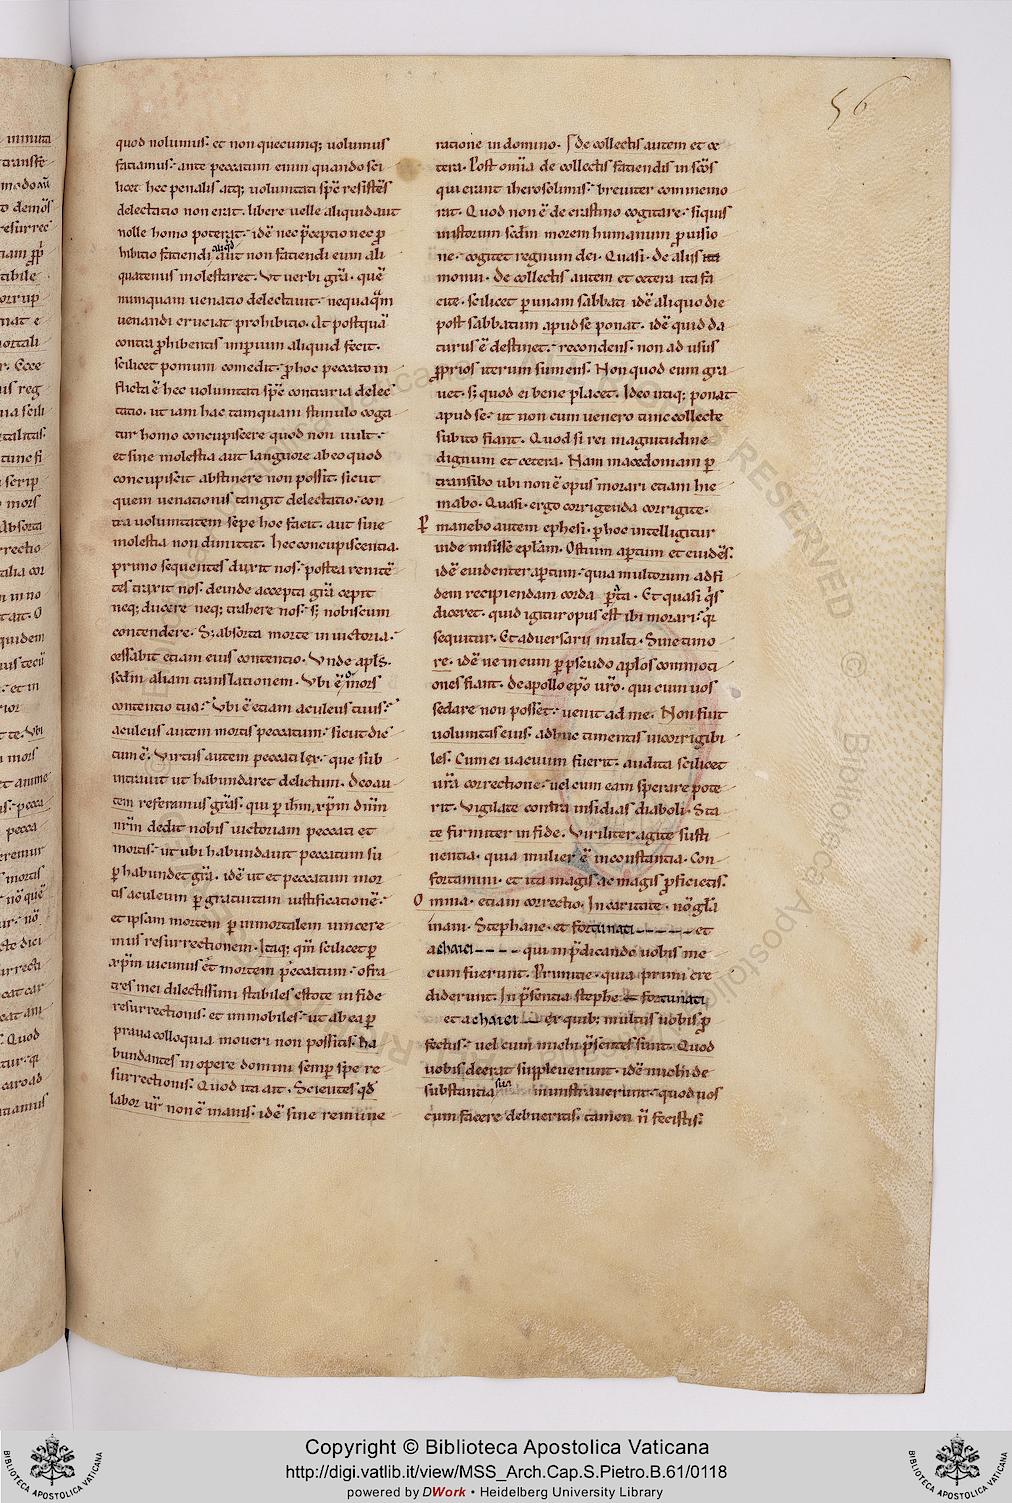 56
quod nolumus. et non quecumq; uolumus
faciamus. ante peccatum enim quando sci
licet hec penalis atq; uoluntati spē resistēs
delectatio non erat. libere uelle aliquid aut
nolle homo poterat. idē nec p̄ceptio nec ꝓ
hibitio faciendi aliqd aut non faciendi eum ali
quatenus molestaret. Vt uerbi grā. quē
numquam uenatio delectauit. nequaqm̄
uenandi cruciat prohibitio. At postquā
contra ꝓhibentis imperium aliquid fecit.
scilicet pomum comedit. ꝓ hoc peccato in
flicta ē hec uoluntati spē contraria delec
tatio. ut iam hac tamquam stimulo coga
tur homo concupiscere quod non uult.
et sine molestia aut languore ab eo quod
concupiscit abstinere non possit. sicut
quem uenationis tangit delectatio. con
tra uoluntatem sepe hoc facit. aut sine
molestia non dimittit. hec concupiscentia.
primo sequentes duxit nos. postea renitē
tes traxit nos. deinde accepta grā cepit
neq; ducere neq; trahere nos. s; nobiscum
contendere. S; absorta morte in uictoria.
cessabit etiam eius contentio. Vnde apls.
scdm aliam translationem. Vbi ē o mors
contentio tua. Vbi ē etiam aculeus tuus.
aculeus autem mortis peccatum. sicut dic
tum ē. Virtus autem peccati lex. que sub
intrauit ut habundaret delictum. deo au
tem referamus grās. qui p ihm xpm dnm
nrm dedit nobis uictoriam peccati et
mortis. ut ubi habundauit peccatum su
p habundet grā. idē ut et peccatum mor
tis aculeum p gratuitam iustificationē.
et ipsam mortem p immortalem uincere
mus resurrectionem. Itaq; qm̄ scilicet p
xpm uicimus et mortem peccatum. o fra
tres mei dilectissimi stabiles estote in fide
resurrectionis. et immobiles. ut ab ea p
praua colloquia moueri non possitis. ha
bundantes in opere domini semp spe re
surrectionis. Quod ita ait. Scientes qd
labor ur̄ non ē inanis. idē sine remune
ratione in domino. de collectis autem et ce
tera. Post omīa de collectis faciendis in scōs
qui erant iherosolimis. breuiter commemo
rat. Quod non ē de crastino cogitare. siquis
iustorum scdm morem humanum prouisio
ne. cogitet regnum dei. Quasi. de aliis ita
monui. De collectis autem et cetera ita fa
cite. scilicet p unam sabbati. idē aliquo die
post sabbatum apud se ponat. idē quid da
turus ē destinet. recondens. non ad usus
ꝓprios iterum sumens. Non quod eum gra
uet. s; quod ei bene placet. Ideo utiq; ponat
apud se. ut non cum uenero tunc collecte
subito fiant. Quod si rei magnitudine
dignum et cetera. Nam macedoniam p
transibo ubi non ē opus morari etiam hie
mabo. Quasi. ergo corrigenda corrigite.
P manebo autem ephesi. p hoc intelligitur
inde misisse eplam. Ostium apertum et euidēs.
idē euidenter aptum. quia multorum ad fi
dem recipiendam corda pata. Et quasi qis
diceret. quid igitur opus est ibi morari.
sequitur. Et aduersarii multi. Sine timo
re. idē ne in eum p pseudo aplos commoti
ones fiant. de apollo epo uro. qui cum uos
sedare non posset. uenit ad me. Non fuit
uoluntas eius. adhuc timentis incorrigibi
les. Cum ei uacuum fuerit. audita scilicet
urā correctione. uel cum eam sperare pote
rit. Vigilate contra insidias diaboli. Sta
te firmiter in fide. Viriliter agite susti
nentia. quia mulier ē inconstantia. Con
fortamini. et ita magis ac magis ꝓficietis.
O mnia. etiam correctio. In caritate. nō glā
inani. Stephane. et fortunati et
achaici qui in pdicando uobis me
cum fuerunt. Primitie. quia primi cre
diderunt. In psentia stephe et fortunati
et achaici ex quib; multus uobis ꝓ
fectus. uel cum michi psentes sunt. Quod
uobis deerat suppleuerunt. idē michi de
substantia sua ministrauerunt. quod uos
cum facere debueritis. tamen n̄ fecistis.
Copyright © Biblioteca Apostolica Vaticana
http://digi.vatlib.it/view/MSS_Arch.Cap.S.Pietro.B.61/0118
powered by DWork • Heidelberg University Library